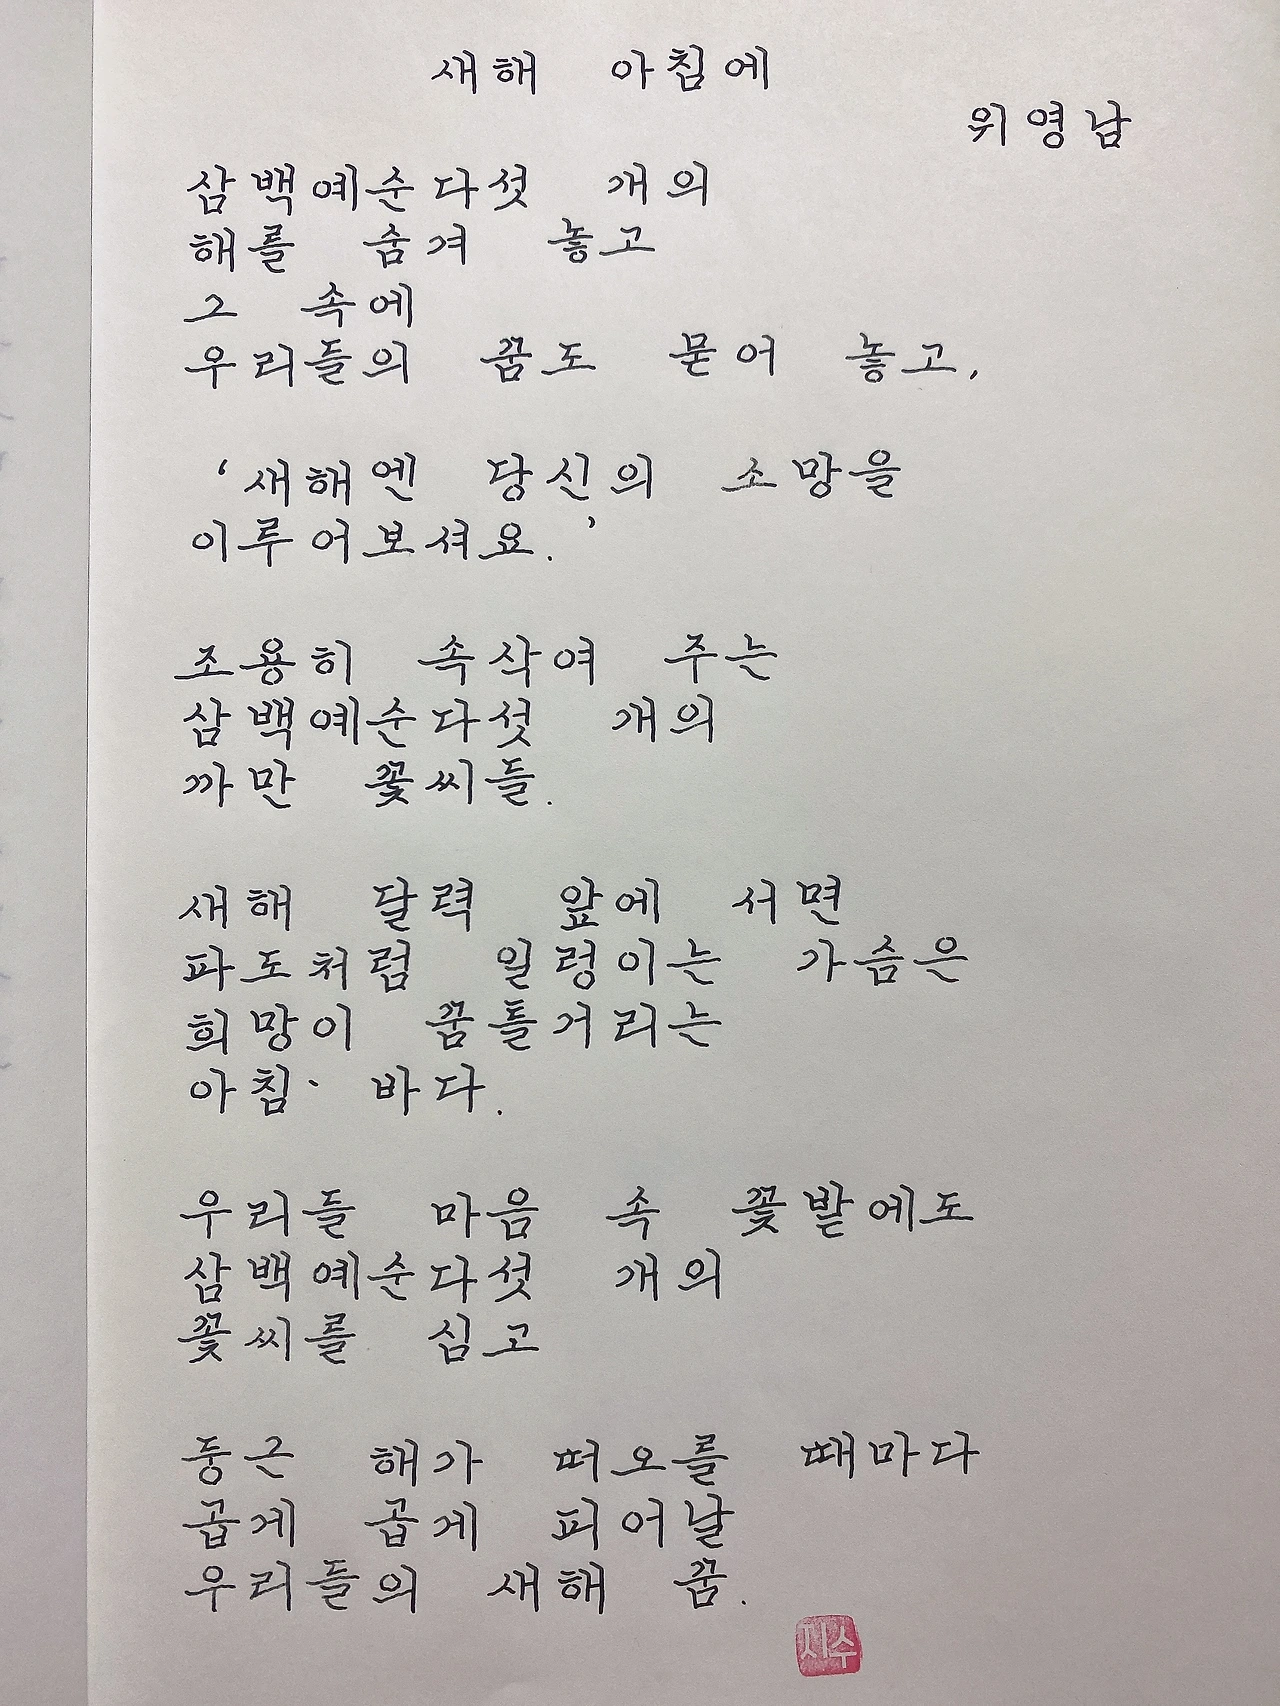 새해 아침에
위영남
삼백예순다섯 개의
해를 숨겨 놓고
그 속에
우리들의 꿈도 묻어 놓고,
‘새해엔 당신의 소망을
이루어보셔요.’
조용히 속삭여 주는
삼백예순다섯 개의
까만 꽃씨들.
새해 달력 앞에 서면
파도처럼 일렁이는 가슴은
희망이 꿈틀거리는
아침· 바다.
우리들 마음 속 꽃밭에도
삼백예순다섯 개의
꽃씨를 심고
둥근 해가 떠오를 때마다
곱게 곱게 피어날
우리들의 새해 꿈.
지수